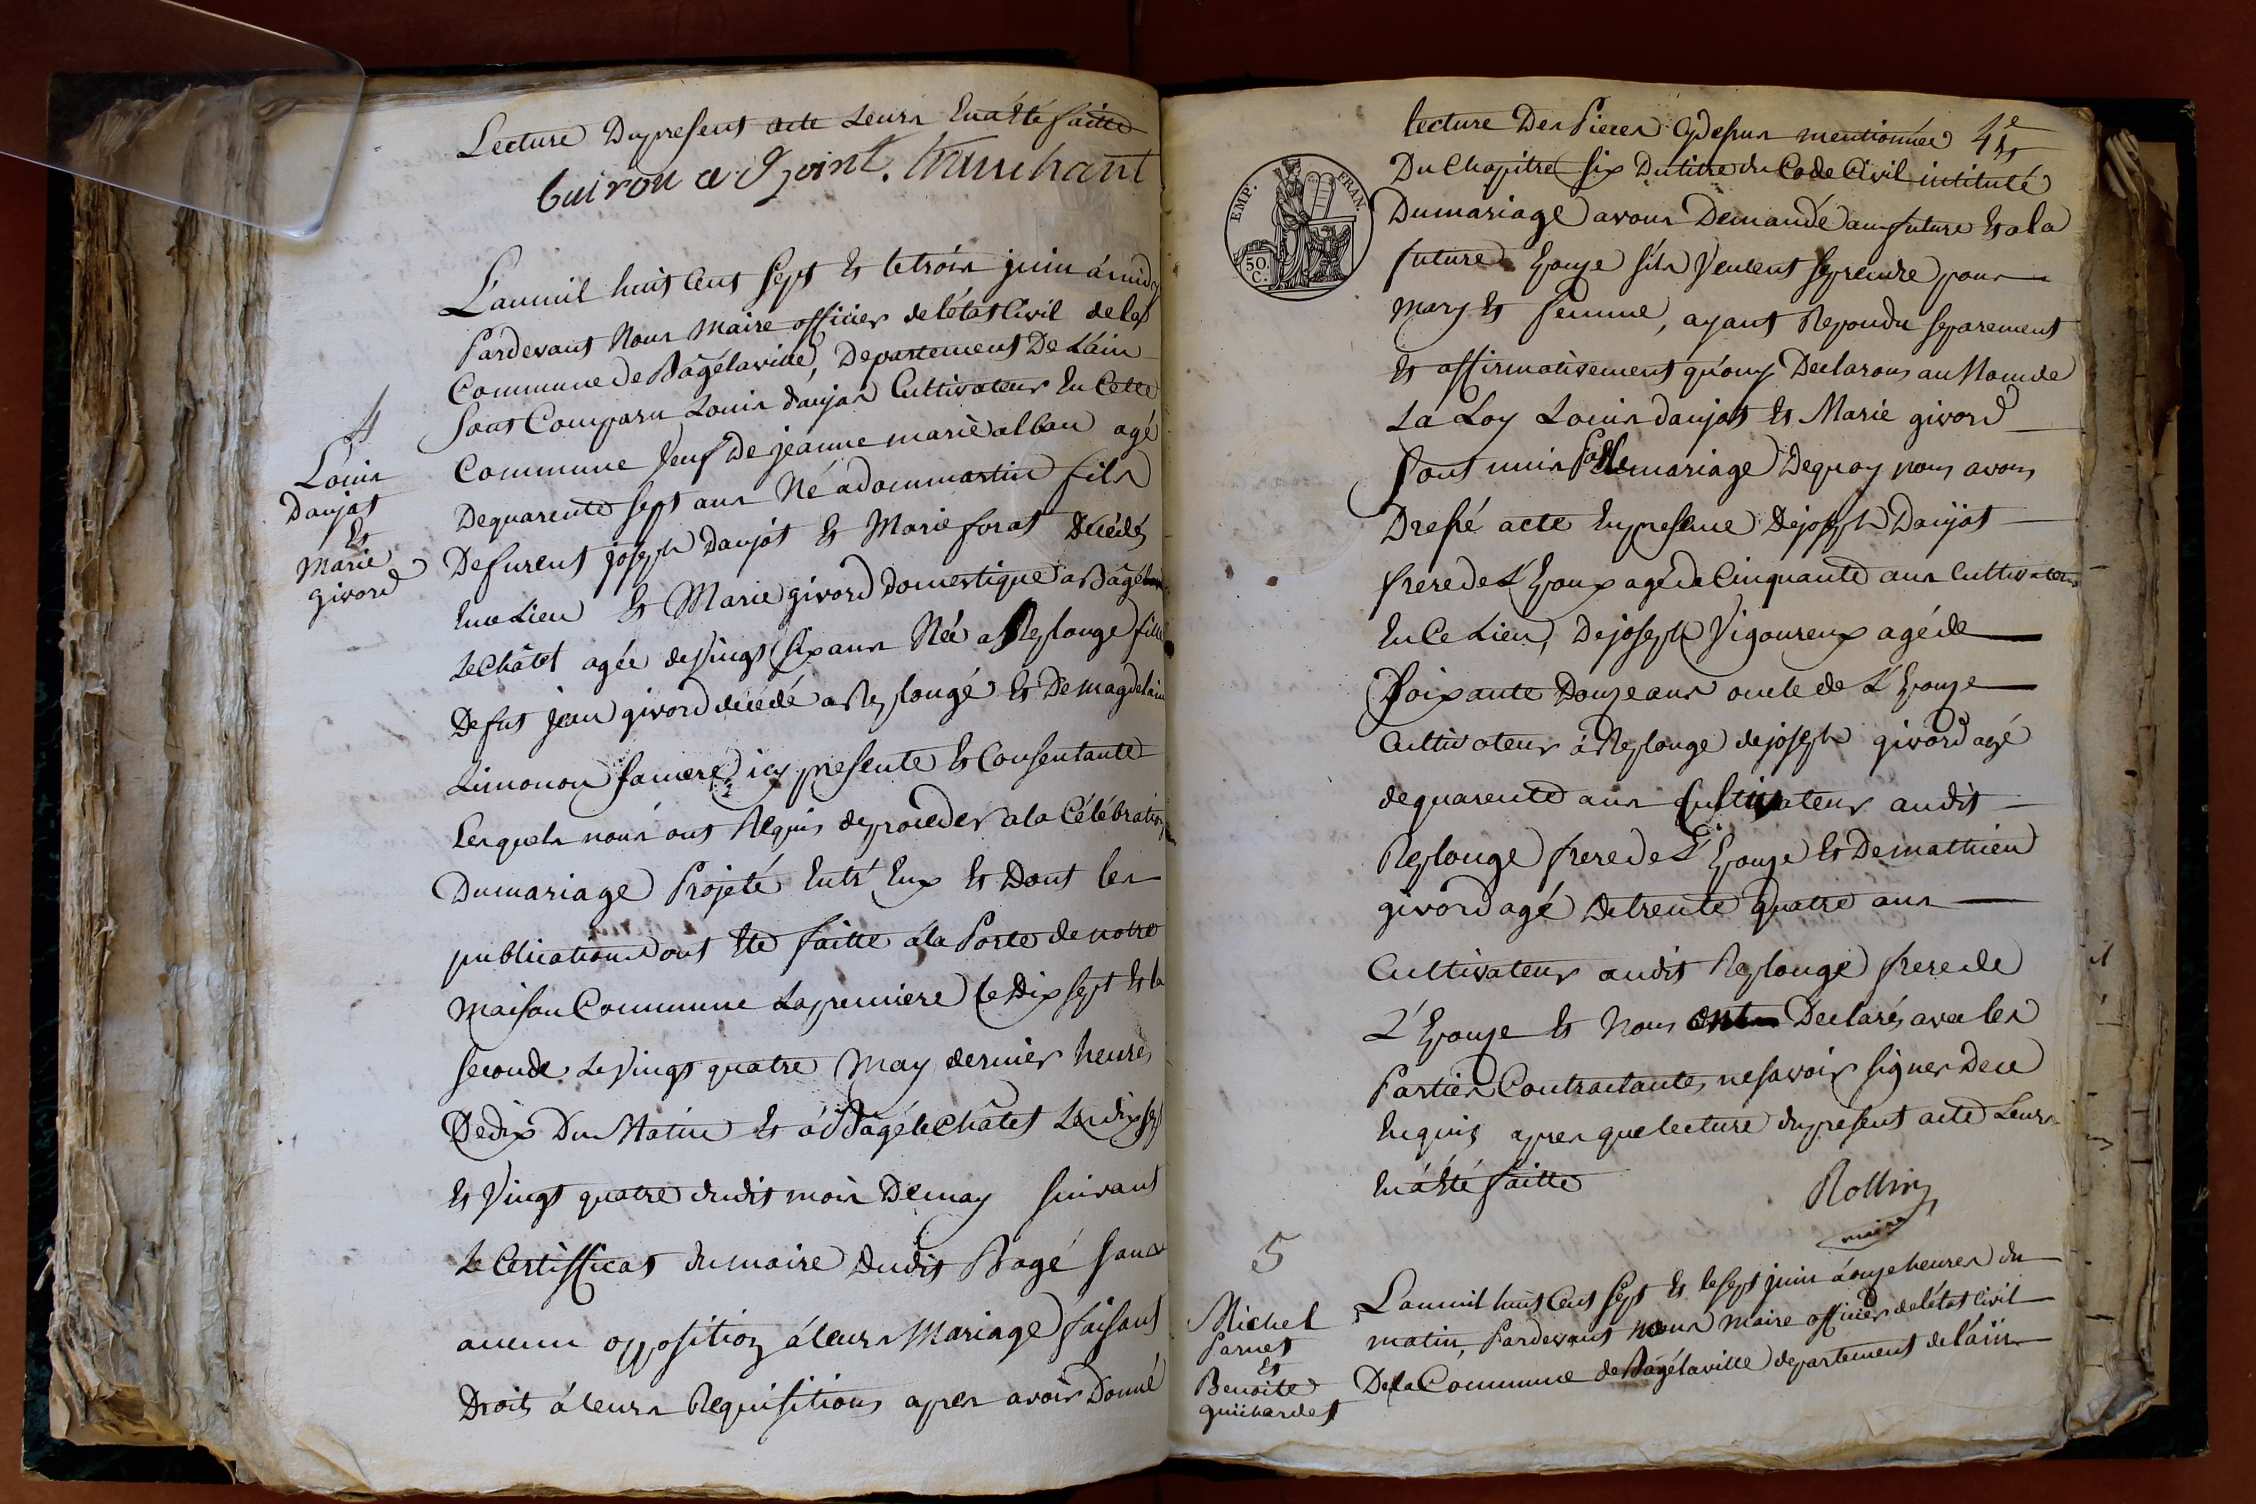 Lecture Du present acte Leurs En a été faitte
Cuiron adjoint.
4
Louis
Daujat
Et
Marie
givord
L'an mil huit Cent Sept Et le trois juin à midy
Pardevant Nous Maire officier de l'état Civil de la
Commune de Bagélaville, Departement De L'ain
Sont Comparu Louis daujat Cultivateur En Cette
Commune Veuf De jeanne marie alban agé
De quarente sept ans Né a dommartin fils
De furent joseph Daujat Et Marie forat Décédés
En ce Lieu Et Marie givord domestique a Bagé
Le Châtel agée de Vingt six ans Née a Replonge fille
De fut Jean givord décédé a Replonge Et De magdelaine
Limonon sa mere icy presente Et Consentante
Lesquels nous ont Requis de proceder a la Célébration
Du mariage Projeté Entr'Eux Et Dont les
publications ont Eté faitte a la Porte de notre
Maison Commune La premiere le Dix sept Et la
seconde Le Vingt quatre May dernier heures
De dix Du Matin Et à Bagé le Châtel Les dix sept
Et Vingt quatre dudit mois De may suivant
Le Certifficat du maire Dudit Bagé sans
aucune opposition à leurs Mariage faisant
Droit à leurs Requisitions apres avoir Donné
EMP. FRAN.
50
C.
lecture Des Pieces Cy dessus mentionnée 4e Et
Du Chapitre six Du titre du Code Civil intitulé
Du mariage avons Demandé au future Et a la
future Epouse s'ils Veulent se prendre pour
Mary Et femme, ayant Repondu separement
Et affirmativement qu'ouy Declarons au Nom de
La Loy Louis daujat Et Marie givord
Sont unis Par le mariage De quoy nous avons
Dressé acte En presence De joseph Daujat
frere de L'Epoux agé de Cinquante ans Cultivateur
En Ce Lieu, De joseph Vigoureux agé de
Soixante Douze ans oncle de L'Epouse
Cultivateur à Replonge de joseph givord agé
de quarente ans Cultivateur audit
Replonge frere de L'Epouse Et De mathieu
givord agé De trente quatre ans
Cultivateur audit Replonge frere de
L'Epouse Et Nous ont Déclarés avec les
Parties Contractantes ne savoir signer De ce
Enquis apres que lecture du present acte Leurs
En a été faitte
Rollin
maire
5
Michel
Parnet
Et
Benoite
guichardet
L'an mil huit Cent sept Et le sept juin à onze heures du
matin, Pardevant nous Maire officier de l'état Civil
De la Commune de Bagélaville departement de l'ain